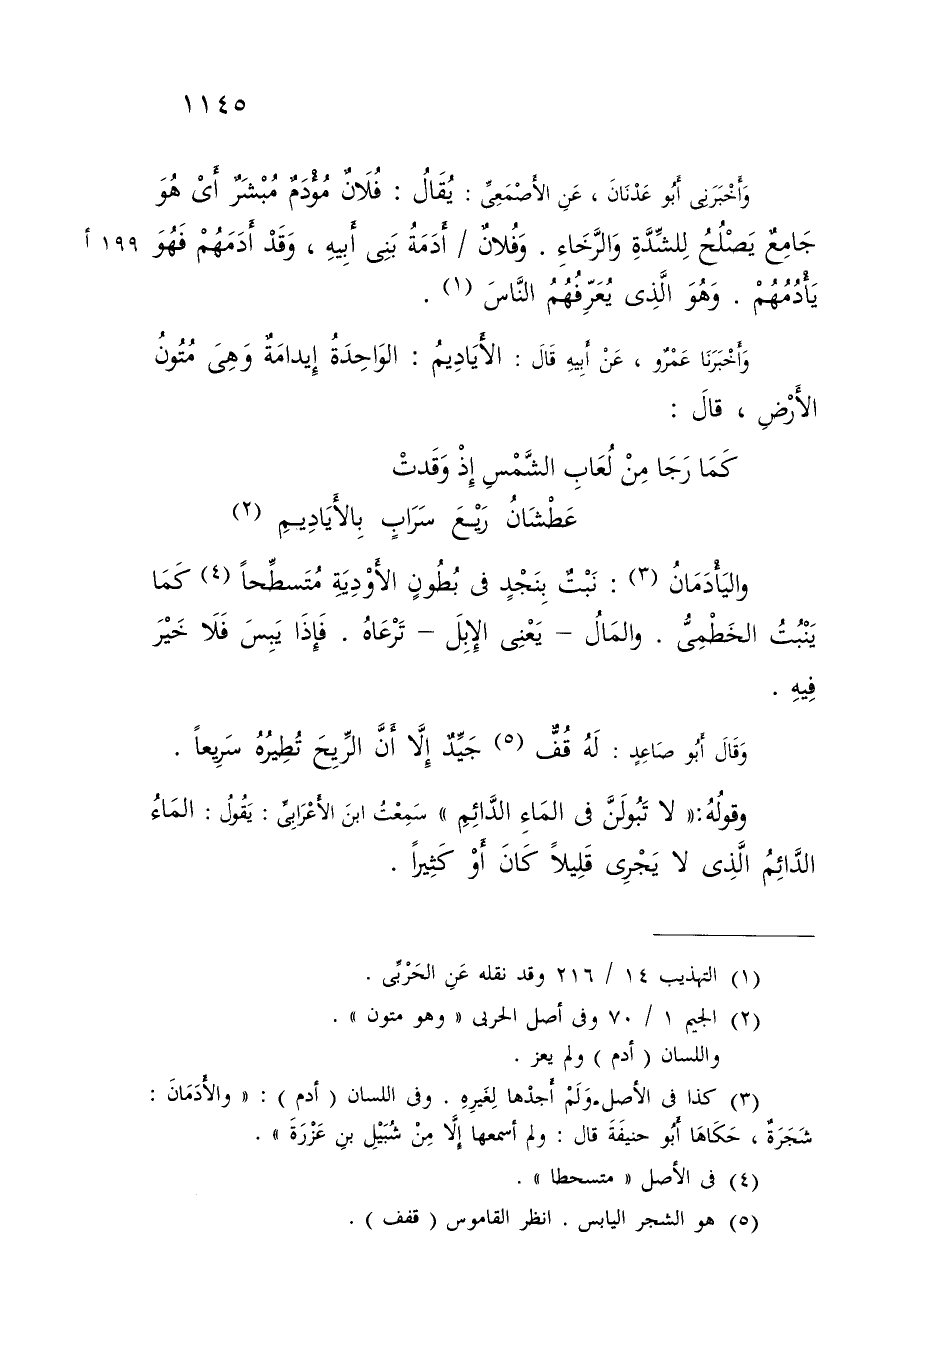 ١١٤٥
وَأَخْبَرَنِى أَبُو عَدْنَانَ ، عَنِ الأَصْمَعِىِّ : يُقَالُ : فُلَانٌ مُؤْدَمٌ مُبْشَرٌ أَىْ هُوَ
جَامِعٌ يَصْلُحُ لِلشِّدَّةِ وَالرَّخَاءِ . وَفُلانٌ / أَدَمَةُ بَنِى أَبِيهِ ، وَقَدْ أَدَمَهُمْ فَهُوَ ١٩٩ أ
يَأْدُمُهُمْ . وَهُوَ الَّذِى يُعَرِّفُهُمُ النَّاسَ (١) .
وَأَخْبَرَنَا عَمْرٌو ، عَنْ أَبِيهِ قَالَ : الأَيَادِيمُ : الوَاحِدَةُ إِيدامَةٌ وَهِىَ مُتُونُ
الأَرْضِ ، قالَ :
كَمَا رَجَا مِنْ لُعَابِ الشَّمْسِ إِذْ وَقَدتْ
عَطْشَانُ رَيْعَ سَرَابٍ بِالأَيَادِيمِ (٢)
واليَأْدَمَانُ (٣) : نَبْتٌ بِنَجْدٍ فى بُطُونِ الأَوْدِيَةِ مُتَسطِّحاً (٤) كَمَا
يَنْبُتُ الخَطْمِىُّ . والمَالُ – يَعْنِى الإِبِلَ – تَرْعَاهُ . فَإِذَا يَبِسَ فَلَا خَيْرَ
فِيهِ .
وَقَالَ أَبُو صَاعِدٍ : لَهُ قُفٌّ (٥) جَيِّدٌ إِلَّا أَنَّ الرِّيحَ تُطِيرُهُ سَرِيعاً .
وقولُهُ:« لا تَبُولَنَّ فى المَاءِ الدَّائِمِ » سَمِعْتُ ابنَ الأَعْرَابِىِّ : يَقُولُ : المَاءُ
الدَّائِمُ الَّذِى لا يَجْرِى قَلِيلاً كَانَ أَوْ كَثِيراً .
(١) التهذيب ١٤ / ٢١٦ وقد نقله عَنِ الحَرْبِّى .
(٢) الجيم ١ / ٧٠ وفى أصل الحربى « وهو متون » .
واللسان ( أدم ) ولم يعز .
(٣) كذا فى الأصل.وَلَمْ أَجدْها لِغَيرِهِ . وفى اللسان ( أدم ) : « والأَدَمَانَ :
شَجَرَةٌ ، حَكَاهَا أَبُو حنيفَةَ قال : ولم أسمعها إلَّا مِنْ شُبَيْلِ بنِ عَزْرَةَ » .
(٤) فى الأصل « متسحطا » .
(٥) هو الشجر اليابس . انظر القاموس ( قفف ) .